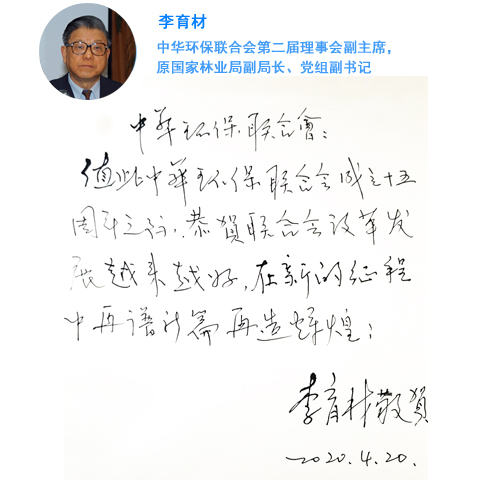 李育材
中华环保联合会第二届理事会副主席，
原国家林业局副局长、党组副书记
中华环保联合會：
值此中华环保联合会成立十五
周年之际，恭賀联合会改革发
展越来越好，在新的征程
中再谱新篇再造辉煌；
李育材敬賀
2020.4.20.